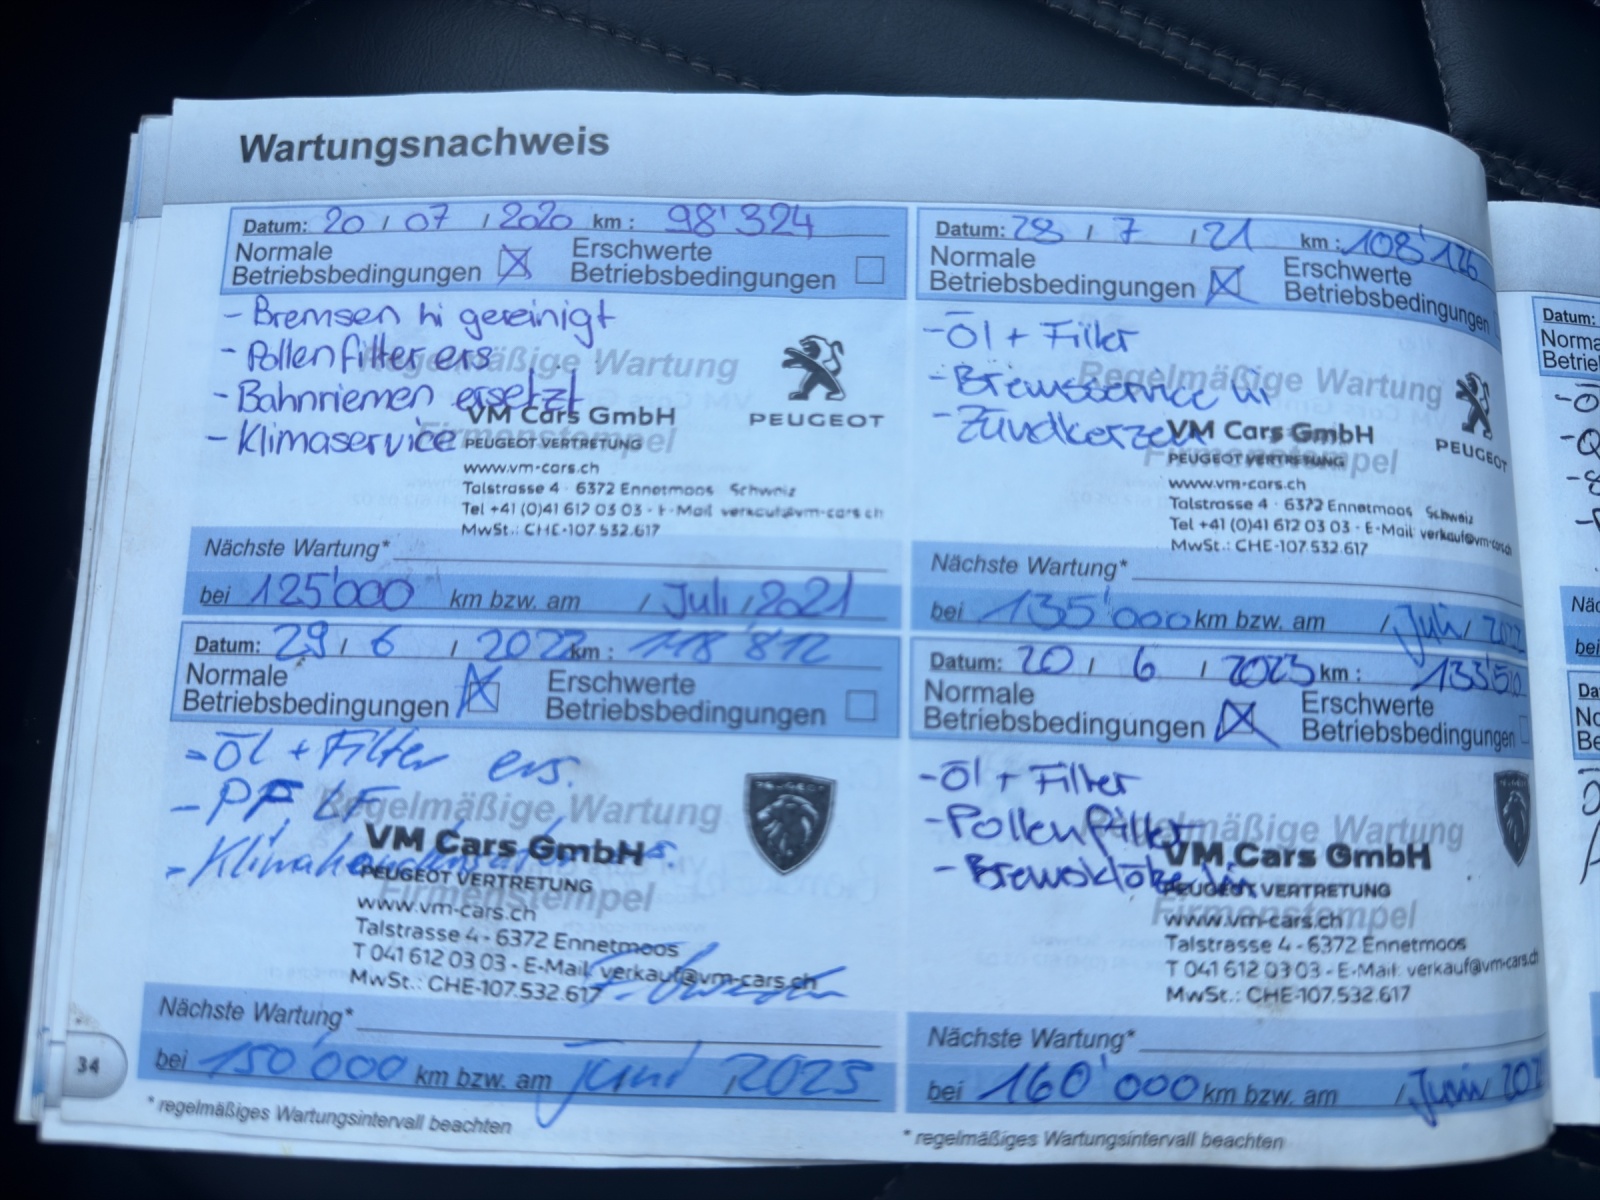 Wartungsnachweis
Datum: 20 / 07 / 2020 km : 98'324
Normale Betriebsbedingungen
Erschwerte Betriebsbedingungen
- Bremsen hi gereinigt
- Pollenfilter ers
- Bahnriemen ersetzt
- Klimaservice
Regelmäßige Wartung
Firmenstempel
PEUGEOT
VM Cars GmbH
PEUGEOT VERTRETUNG
www.vm-cars.ch
Talstrasse 4 · 6372 Ennetmoos Schweiz
Tel +41 (0)41 612 03 03 · E-Mail verkauf@vm-cars.ch
MwSt.: CHE-107.532.617
Nächste Wartung*
bei 125'000 km bzw. am / Juli / 2021
Datum: 28 / 7 / 21 km : 108'126
Normale Betriebsbedingungen
Erschwerte Betriebsbedingungen
- Öl + Filter
- Bremsservice hi
- Zündkerzen
Regelmäßige Wartung
Firmenstempel
PEUGEOT
VM Cars GmbH
PEUGEOT VERTRETUNG
www.vm-cars.ch
Talstrasse 4 · 6372 Ennetmoos Schweiz
Tel +41 (0)41 612 03 03 · E-Mail verkauf@vm-cars.ch
MwSt.: CHE-107.532.617
Nächste Wartung*
bei 135'000 km bzw. am / Juli / 2022
Datum: 29 / 6 / 2022 km : 118'812
Normale Betriebsbedingungen
Erschwerte Betriebsbedingungen
- Öl + Filter ers.
- PF, LF
Regelmäßige Wartung
Firmenstempel
VM Cars GmbH
PEUGEOT VERTRETUNG
www.vm-cars.ch
Talstrasse 4 - 6372 Ennetmoos
T 041 612 03 03 - E-Mail: verkauf@vm-cars.ch
MwSt.: CHE-107.532.617
Nächste Wartung*
bei 150'000 km bzw. am Juni / 2023
* regelmäßiges Wartungsintervall beachten
Datum: 20 / 6 / 2023 km : 133'510
Normale Betriebsbedingungen
Erschwerte Betriebsbedingungen
- Öl + Filter
- Pollenfilter
- Bremsklötze hi
Regelmäßige Wartung
Firmenstempel
VM Cars GmbH
PEUGEOT VERTRETUNG
www.vm-cars.ch
Talstrasse 4 - 6372 Ennetmoos
T 041 612 03 03 - E-Mail: verkauf@vm-cars.ch
MwSt.: CHE-107.532.617
Nächste Wartung*
bei 160'000 km bzw. am / Juni /
* regelmäßiges Wartungsintervall beachten
34
Datum: